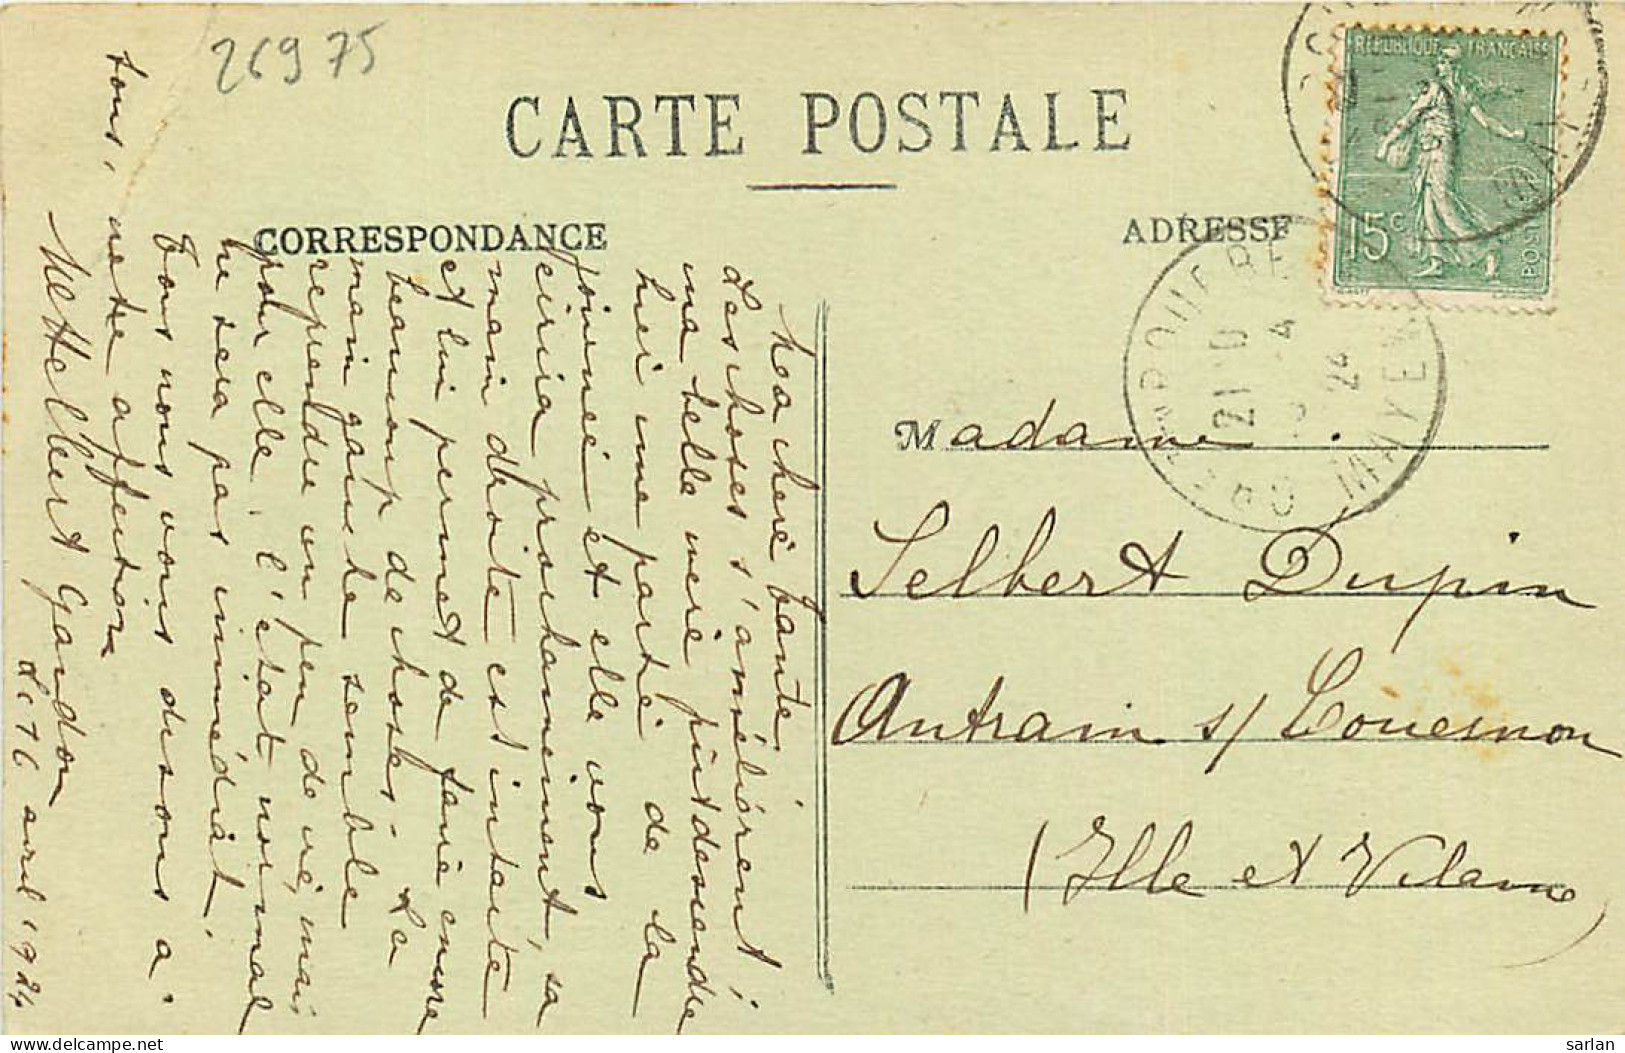 26975
CARTE POSTALE
CORRESPONDANCE
ADRESSE
REPUBLIQUE FRANÇAISE
15c
POSTES
MAYENNE
21 10
4
24
Madame
Selbert Dupin
Antrain s/ Couesnon
(Ille et Vilaine)
Ma chère tante,
Les choses s'améliorent;
ma belle mère pût descendre
hier une partie de la
journée et elle vous
écrira prochainement, sa
main droite est intacte
et lui permet de faire encore
beaucoup de choses - La
main gauche semble
reprendre un peu de vie, mais
pour elle, l'état normal
ne sera pas immédiat.
Tous nous vous disons à
tous, notre affection
Selbert Gandon
Le 16 avril 1924
sarlan